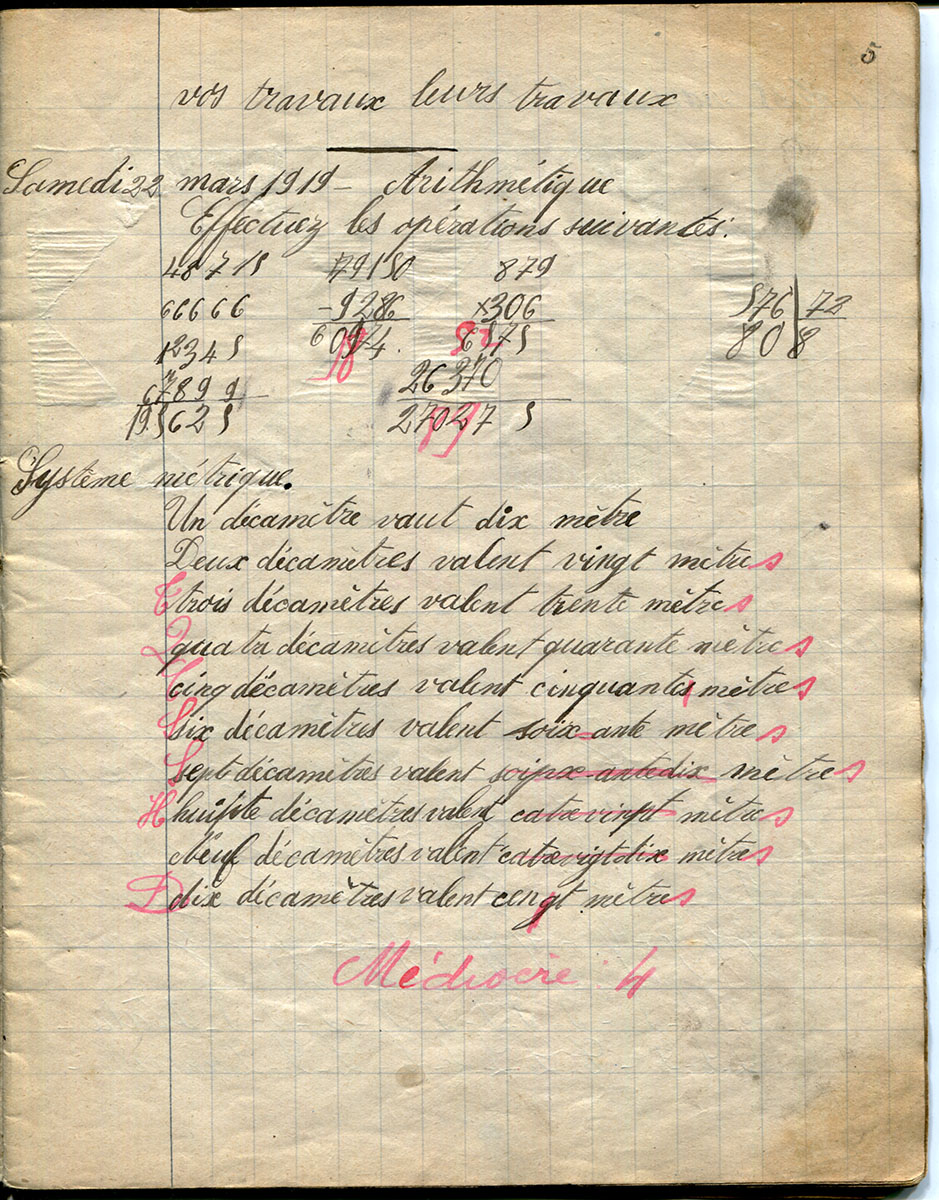 5
vos travaux leurs travaux
Samedi 22 mars 1919 - Arithmétique
Effectuez les opérations suivantes:
48715 79150 879
66666 -9286 x306 576 72
12345 6094 6575 80 8
67899 26370
195625 270275
Système métrique.
Un décamètre vaut dix mètre
Deux décamètres valent vingt mètres
Ttrois décamètres valent trente mètres
Qquatre décamètres valent quarante mètres
Ccinq décamètres valent cinquantes mètres
Ssix décamètres valent soix-ante mètres
Ssept décamètres valent mètres
Hhuitte décamètres valent catre vinpt mètres
Neuf décamètres valent catrevigtdix mètres
Ddix décamètres valent cengt mètres
Médiocre 4